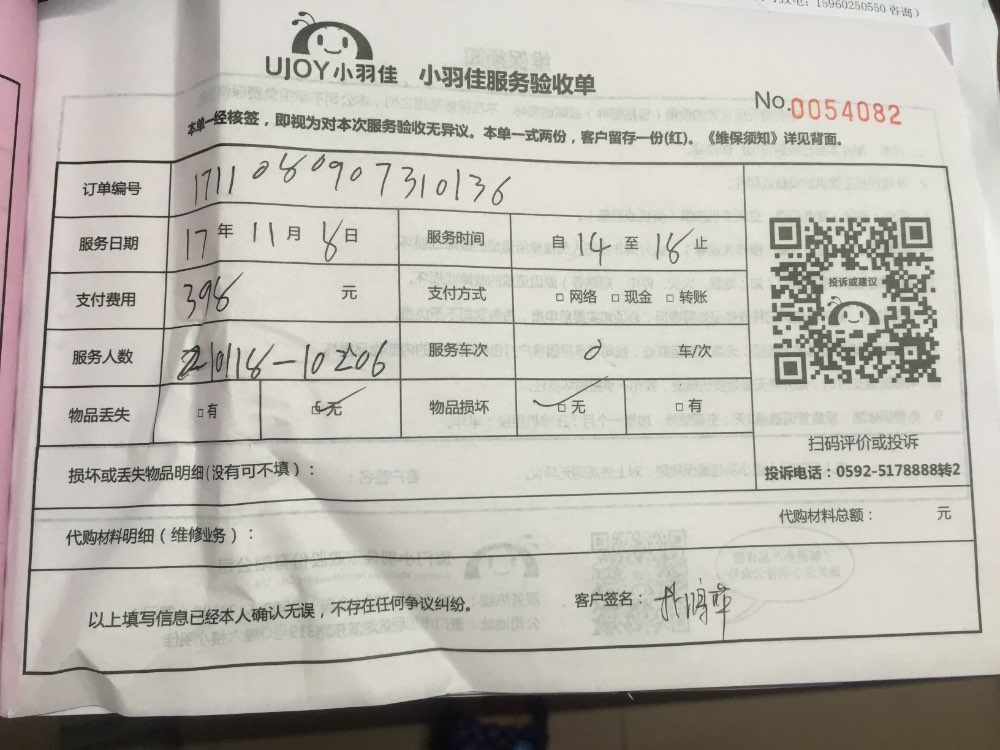 15960250550 咨询）
UJOY小羽佳 小羽佳服务验收单
No.0054082
本单一经核签，即视为对本次服务验收无异议。本单一式两份，客户留存一份(红)。《维保须知》详见背面。
订单编号 171108090731 0136
服务日期 17 年 11 月 8 日 服务时间 自 14 至 18 止
支付费用 398 元 支付方式 □ 网络 □ 现金 □ 转账
投诉或建议
服务人数 210118-10206 人 服务车次 0 车/次
物品丢失 □有 □无 物品损坏 □无 □有
扫码评价或投诉
投诉电话：0592-5178888转2
损坏或丢失物品明细(没有可不填)：
代购材料明细（维修业务）： 代购材料总额： 元
以上填写信息已经本人确认无误，不存在任何争议纠纷。 客户签名：